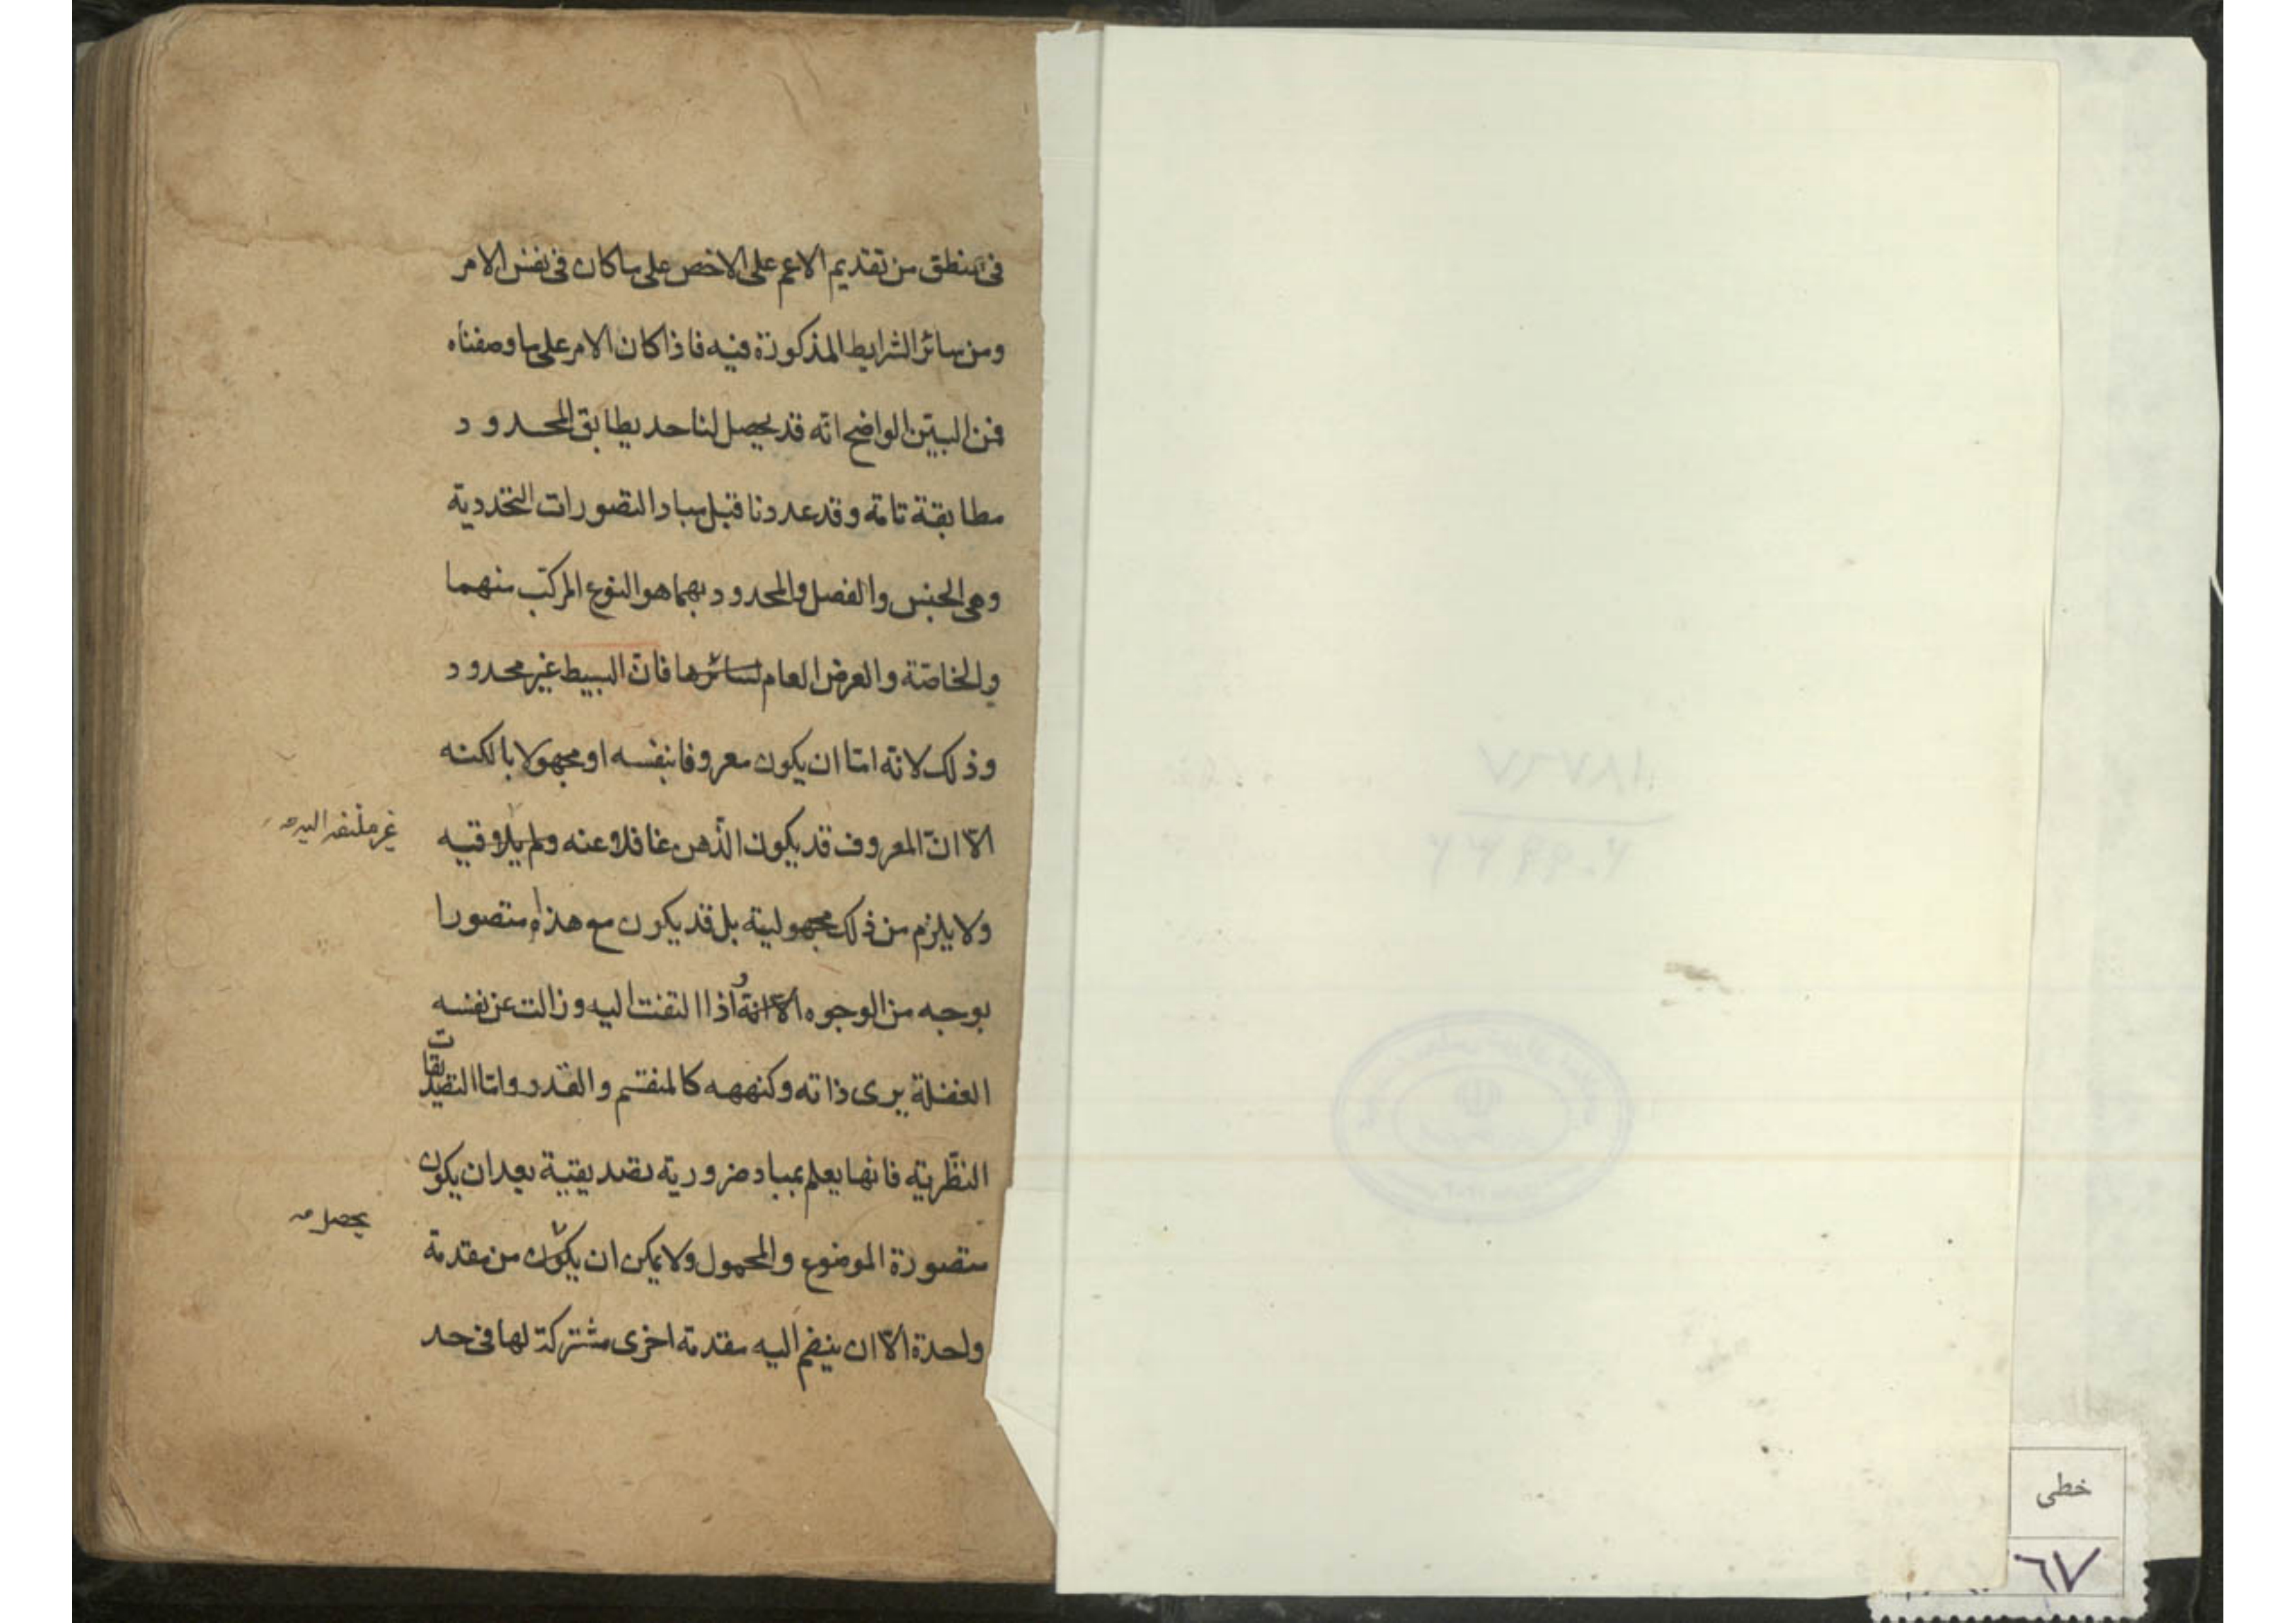 في المنطق من تقديم الاعم على الاخص على ما كان في نفس الامر
ومن سائر الشرايط المذكورة فيه فاذا كان الامر على ما وصفناه
فمن البيّن الواضح انه قد يحصل لنا حد يطابق المحدود
مطابقة تامة وقد عددنا قبل مباد التصورات التحددية
وهي الجنس والفصل والمحدود بهما هو النوع المركب منهما
والخاصّة والعرض العام لسائرها فانّ البسيط غير محدود
وذلك لانه امّا ان يكون معروفا بنفسه او مجهولا بالكنه
الّا انّ المعروف قد يكون الذّهن غافلا عنه ولم يلاقيه
غير ملتفت اليه
ولا يلزم من ذلك مجهولية بل قد يكون مع هذا متصورا
بوجه من الوجوه الّا انّه اذا التفت اليه وزالت عن نفسه
الغفلة يرى ذاته وكنهه كالمنقسم والقدر وامّا التصديقات
النظّرية فانها يعلم بمباد ضرورية تصديقية بعد ان يكون
متصورة الموضوع والمحمول ولا يمكن ان يكون من مقدمة
يحصل
واحدة الّا ان ينضم اليه مقدمة اخرى مشتركة لها في حد
خطی
٦٧